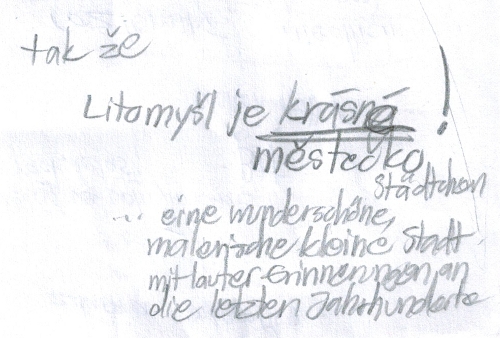 tak že
Litomyšl je krásné !
městečko
Städtchen
... eine wunderschöne,
malerische kleine Stadt
mit lauter Erinnerungen an
die letzten Jahrhunderte